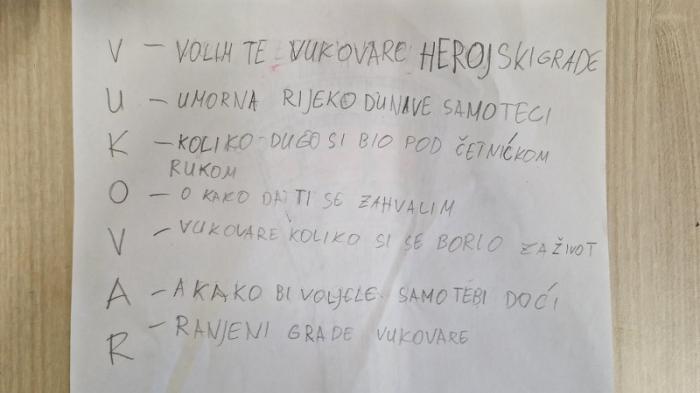 V – VOLIM TE VUKOVARE HEROJSKI GRADE
U – UMORNA RIJEKO DUNAVE SAMO TECI
K – KOLIKO DUGO SI BIO POD ČETNIČKOM
RUKOM
O – O KAKO DA TI SE ZAHVALIM
V – VUKOVARE KOLIKO SI SE BORIO ZA ŽIVOT
A – A KAKO BI VOLJELE SAMO TEBI DOĆI
R – RANJENI GRADE VUKOVARE